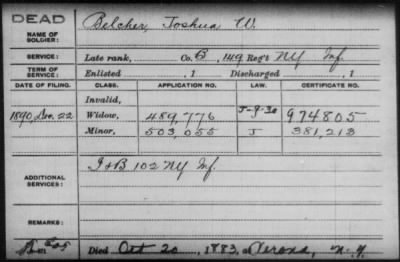 DEAD
NAME OF SOLDIER:
Belcher, Joshua W.
SERVICE:
Late rank, Co. B, 149 Reg't NY Inf.
TERM OF SERVICE:
Enlisted , 1 Discharged , 1
DATE OF FILING. CLASS. APPLICATION NO. LAW. CERTIFICATE NO.
Invalid,
1890, Dec. 22 Widow, 489,776 J-9-30 974805
Minor, 503,055 J 381,213
ADDITIONAL SERVICES:
I & B 102 NY Inf.
REMARKS:
Died Oct 20, 1883, at Verona, N.Y.